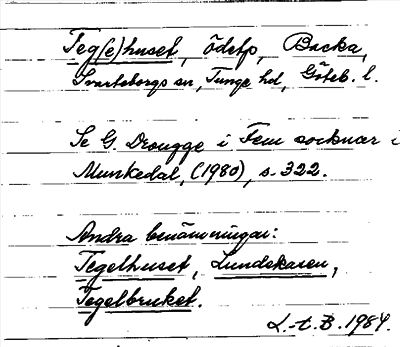 Teg(e)huset, ödetp, Backa,
Svarteborgs sn, Tunge hd, Göteb. l.
Se G. Drougge i Fem socknar i
Munkedal, (1980), s. 322.
Andra benämningar:
Tegelhuset, Lundekasen,
Tegelbruket.
L.-t. B. 1984.